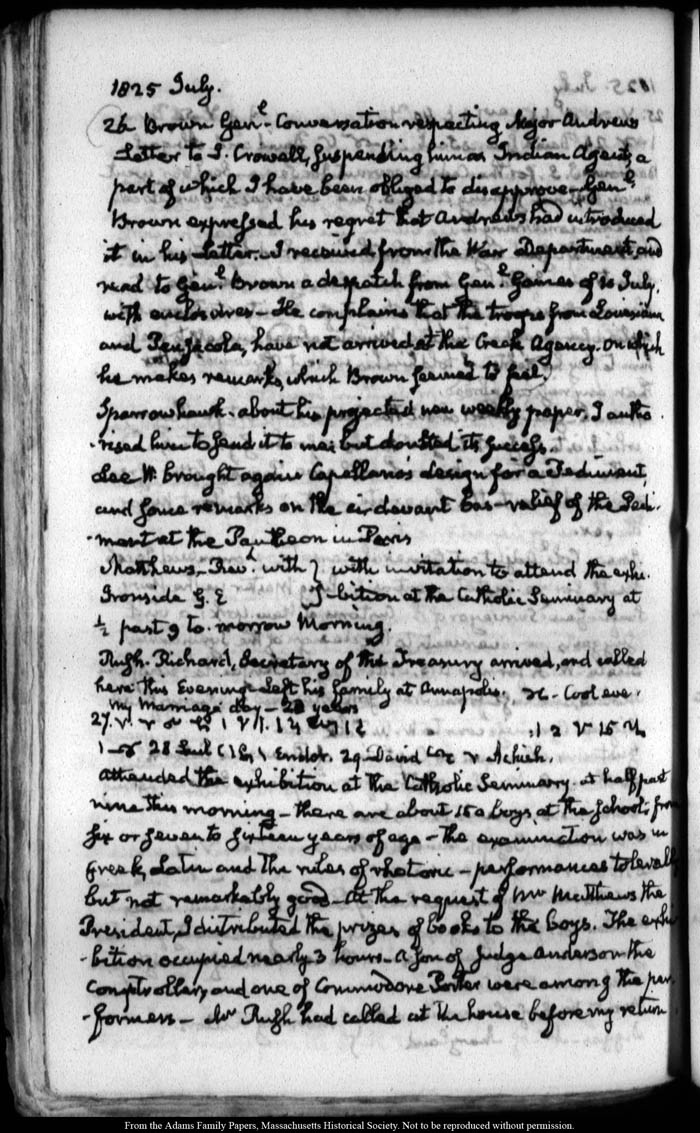 1825 July.
26 Brown Genl. Conversation respecting Major Andrews
Letter to J. Crowell, suspending him as Indian Agent, a
part of which I have been obliged to disapprove—Genl.
Brown expressed his regret that Andrews had introduced
it in his Letter. I received from the War Department, and
read to Genl. Brown a despatch from Genl. Gaines of 10 July.
with enclosures—He complains that the troops from Louisiana
and Pensacola, have not arrived at the Creek Agency. On which
he makes remarks, which Brown seemed to feel.
Sparrowhawk—about his projected new weekly paper. I autho-
-rised him to send it to me; but doubted its success.
Lee W. brought again Capellano's design for a Pediment,
and some remarks on the ci-devant bas-relief of the Pedi-
-ment at the Pantheon in Paris
Matthews—Revd. with } with invitation to attend the exhi-
Ironside G. E } -bition at the Catholic Seminary at
½ past 9 to-morrow Morning.
Rush. Richard, Secretary of the Treasury arrived, and called
here this Evening—Left his family at Annapolis. Cool eve.
My Marriage day—28 years
27.
1 28 Endor. 29 David Achish.
Attended the exhibition at the Catholic Seminary. at half past
nine this morning—there are about 150 boys at the School; from
six or seven to sixteen years of age—the examination was in
Greek, Latin and the rules of rhetoric—performances tolerably
but not remarkably good—At the request of Mr Matthews the
President, I distributed the prizes of books to the boys. The exhi-
-bition occupied nearly 3 hours—A son of Judge Anderson the
Comptroller, and one of Commodore Porter were among the per-
-formers—Mr Rush had called at the house before my return
From the Adams Family Papers, Massachusetts Historical Society. Not to be reproduced without permission.